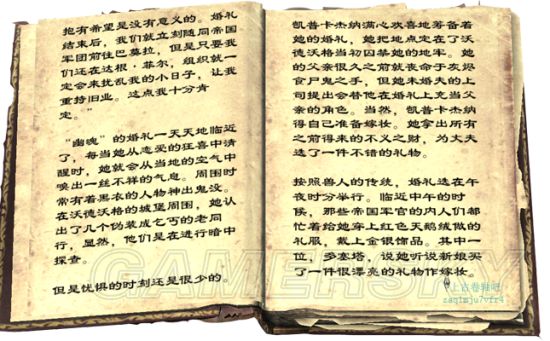 抱有希望是没有意义的。婚礼
结束后，我们就立刻随同帝国
军团前往巴莫拉，但是只要我
们还在达根·菲尔，组织就一
定会来扰乱我的小日子，让我
重持旧业。这点我十分肯
定。”
“幽魂”的婚礼一天天地临近
了，每当她从恋爱的狂喜中清
醒时，她就会从当地的空气中
嗅出一丝不祥的气息。周围时
常有着黑衣的人物神出鬼没。
在沃德沃格的城堡周围，她认
出了几个伪装成乞丐的老同
行，显然，他们是在进行暗中
探查。
但是忧惧的时刻还是很少的。
凯普卡杰纳满心欢喜地筹备着
她的婚礼，她把地点定在了沃
德沃格当初囚禁她的地牢。她
的父亲很久之前就丧命于灰烬
食尸鬼之手，但她未婚夫的上
司提出会替他在婚礼上充当父
亲的角色。当然，凯普卡杰纳
得自己准备嫁妆。她拿出所有
之前得来的不义之财，为丈夫
选了一件不错的礼物。
按照兽人的传统，婚礼选在午
夜时分举行。临近中午的时
候，那些帝国军官的内人们都
忙着给她穿上红色天鹅绒做的
礼服，戴上金银饰品。其中一
位，多塞塔，说她听说新娘买
了一件很漂亮的礼物作嫁妆。
GAMERSKY
上古卷轴吧
zaq1mju7vfr4